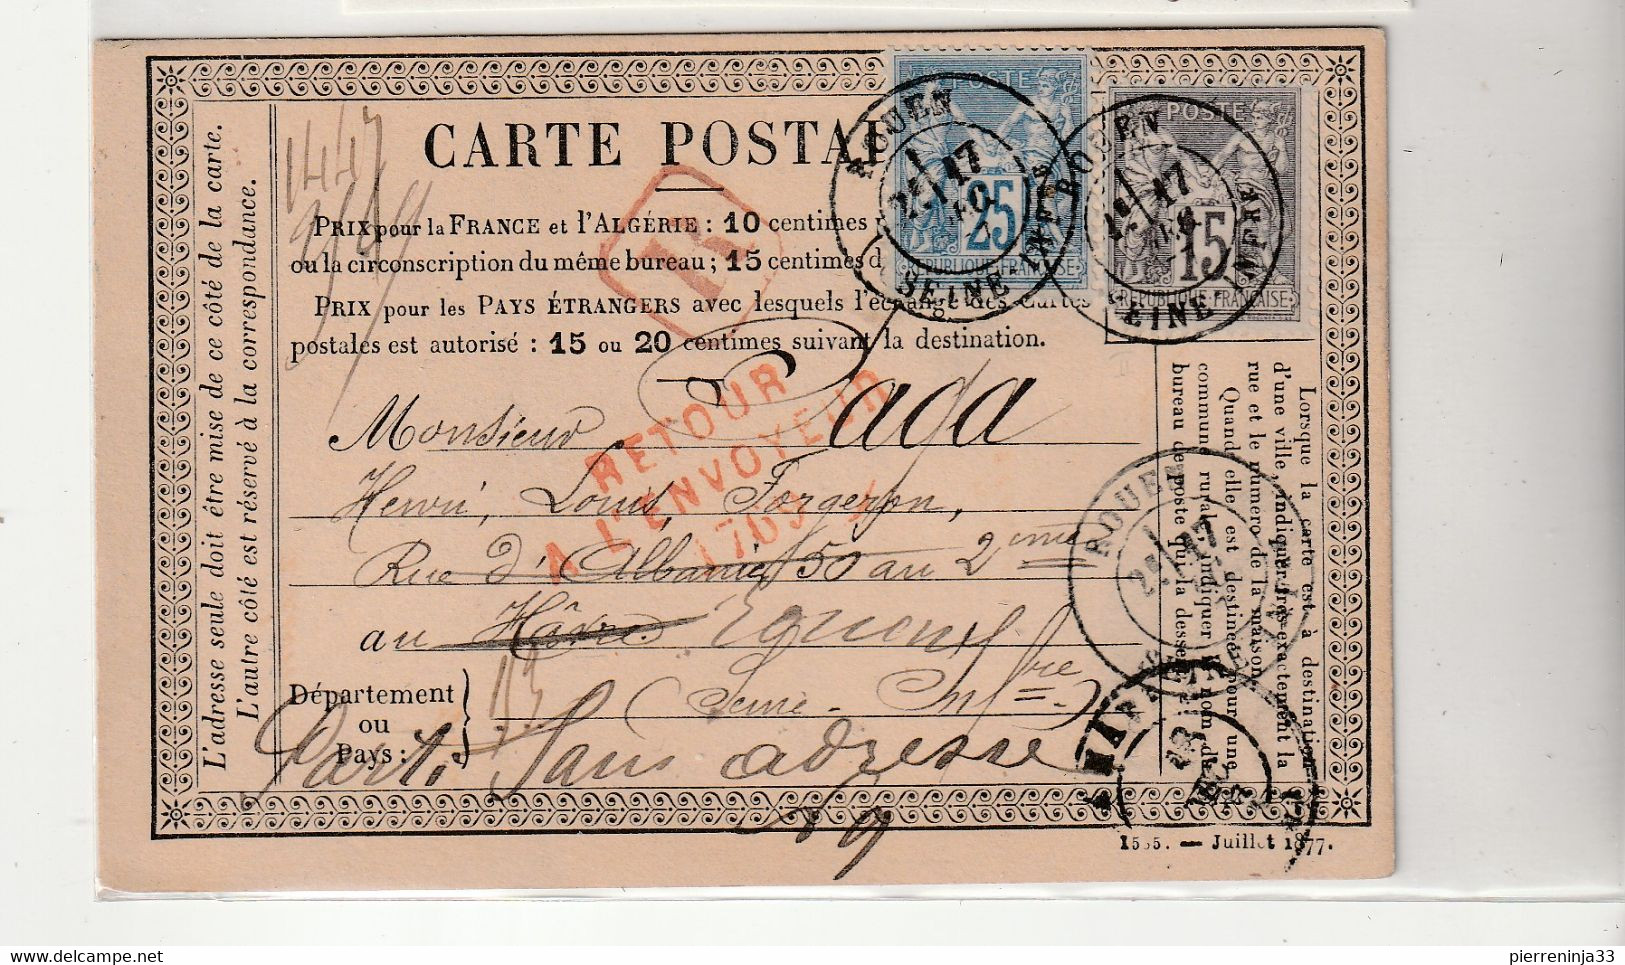 CARTE POSTAL
PRIX pour la FRANCE et l'ALGÉRIE : 10 centimes
ou la circonscription du même bureau ; 15 centimes d
PRIX pour les PAYS ÉTRANGERS avec lesquels l'échange des Cartes
postales est autorisé : 15 ou 20 centimes suivant la destination.
POSTE
25
REPUBLIQUE FRANÇAISE
POSTE
15
REPUBLIQUE FRANÇAISE
ROUEN
17
SEINE-INFRE
ROUEN
17
SEINE-INFRE
R
RETOUR
A L'ENVOYEUR
1769
Monsieur Paga
Henri, Louis, Forgeron,
Rue d'Albanie 50 au 2ème
au Hâvre
(Seine-Infre)
Département
ou
Pays :
Parti Sans adresse
L'adresse seule doit être mise de ce côté de la carte.
L'autre côté est réservé à la correspondance.
Lorsque la carte est à destination
d'une ville, indiquer très exactement la
rue et le numéro de la maison.
Quand elle est destinée pour une
commune rurale, indiquer le nom du
bureau de poste qui la dessert.
ROUEN
17
1555. — Juillet 1877.
pierreninja33